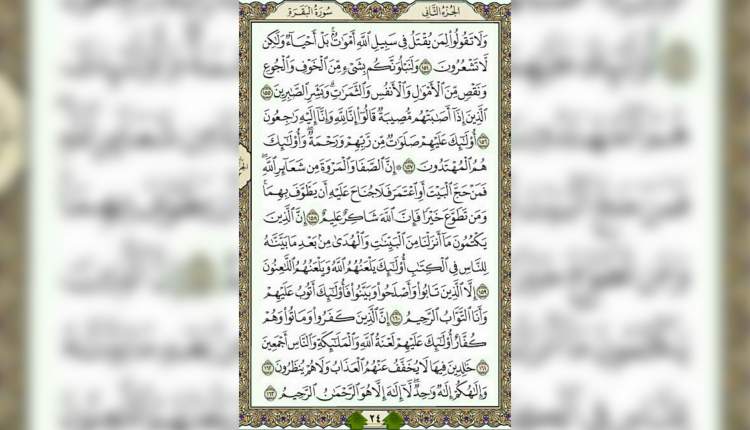 الجزء الثاني سورة البقرة
وَلَا تَقُولُوا۟ لِمَن يُقْتَلُ فِى سَبِيلِ ٱللَّهِ أَمْوَٰتٌۢ ۚ بَلْ أَحْيَآءٌ وَلَٰكِن
لَّا تَشْعُرُونَ ١٥٤ وَلَنَبْلُوَنَّكُم بِشَىْءٍ مِّنَ ٱلْخَوْفِ وَٱلْجُوعِ
وَنَقْصٍ مِّنَ ٱلْأَمْوَٰلِ وَٱلْأَنفُسِ وَٱلثَّمَرَٰتِ ۗ وَبَشِّرِ ٱلصَّٰبِرِينَ ١٥٥
ٱلَّذِينَ إِذَآ أَصَٰبَتْهُم مُّصِيبَةٌ قَالُوٓا۟ إِنَّا لِلَّهِ وَإِنَّآ إِلَيْهِ رَٰجِعُونَ
١٥٦ أُو۟لَٰٓئِكَ عَلَيْهِمْ صَلَوَٰتٌ مِّن رَّبِّهِمْ وَرَحْمَةٌ ۖ وَأُو۟لَٰٓئِكَ
هُمُ ٱلْمُهْتَدُونَ ١٥٧ ۞ إِنَّ ٱلصَّفَا وَٱلْمَرْوَةَ مِن شَعَآئِرِ ٱللَّهِ ۖ
فَمَنْ حَجَّ ٱلْبَيْتَ أَوِ ٱعْتَمَرَ فَلَا جُنَاحَ عَلَيْهِ أَن يَطَّوَّفَ بِهِمَا ۚ
وَمَن تَطَوَّعَ خَيْرًا فَإِنَّ ٱللَّهَ شَاكِرٌ عَلِيمٌ ١٥٨ إِنَّ ٱلَّذِينَ
يَكْتُمُونَ مَآ أَنزَلْنَا مِنَ ٱلْبَيِّنَٰتِ وَٱلْهُدَىٰ مِنۢ بَعْدِ مَا بَيَّنَّٰهُ
لِلنَّاسِ فِى ٱلْكِتَٰبِ ۙ أُو۟لَٰٓئِكَ يَلْعَنُهُمُ ٱللَّهُ وَيَلْعَنُهُمُ ٱللَّٰعِنُونَ
١٥٩ إِلَّا ٱلَّذِينَ تَابُوا۟ وَأَصْلَحُوا۟ وَبَيَّنُوا۟ فَأُو۟لَٰٓئِكَ أَتُوبُ عَلَيْهِمْ ۚ
وَأَنَا ٱلتَّوَّابُ ٱلرَّحِيمُ ١٦٠ إِنَّ ٱلَّذِينَ كَفَرُوا۟ وَمَاتُوا۟ وَهُمْ
كُفَّارٌ أُو۟لَٰٓئِكَ عَلَيْهِمْ لَعْنَةُ ٱللَّهِ وَٱلْمَلَٰٓئِكَةِ وَٱلنَّاسِ أَجْمَعِينَ
١٦١ خَٰلِدِينَ فِيهَا ۖ لَا يُخَفَّفُ عَنْهُمُ ٱلْعَذَابُ وَلَا هُمْ يُنظَرُونَ ١٦٢
وَإِلَٰهُكُمْ إِلَٰهٌ وَٰحِدٌ ۖ لَّآ إِلَٰهَ إِلَّا هُوَ ٱلرَّحْمَٰنُ ٱلرَّحِيمُ ١٦٣
٢٤